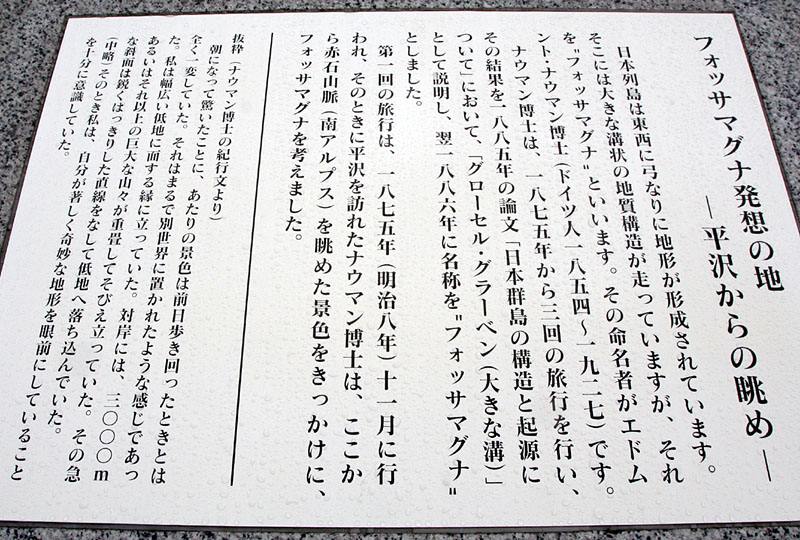 フォッサマグナ発想の地
―平沢からの眺め―
日本列島は東西に弓なりに地形が形成されています。
そこには大きな溝状の地質構造が走っていますが、それ
を"フォッサマグナ"といいます。その命名者がエドム
ント・ナウマン博士(ドイツ人一八五四～一九二七)です。
ナウマン博士は、一八七五年から三回の旅行を行い、
その結果を一八八五年の論文「日本群島の構造と起源に
ついて」において、「グローセル・グラーベン(大きな溝)」
として説明し、翌一八八六年に名称を"フォッサマグナ"
としました。
第一回の旅行は、一八七五年(明治八年)十一月に行
われ、そのときに平沢を訪れたナウマン博士は、ここか
ら赤石山脈(南アルプス)を眺めた景色をきっかけに、
フォッサマグナを考えました。
抜粋(ナウマン博士の紀行文より)
朝になって驚いたことに、あたりの景色は前日歩き回ったときとは
全く一変していた。それはまるで別世界に置かれたような感じであっ
た。私は幅広い低地に面する縁に立っていた。対岸には、三〇〇〇m
あるいはそれ以上の巨大な山々が重畳してそびえ立っていた。その急
な斜面は鋭くはっきりした直線をなして低地へ落ち込んでいた。
(中略)そのとき私は、自分が著しく奇妙な地形を眼前にしていること
を十分に意識していた。